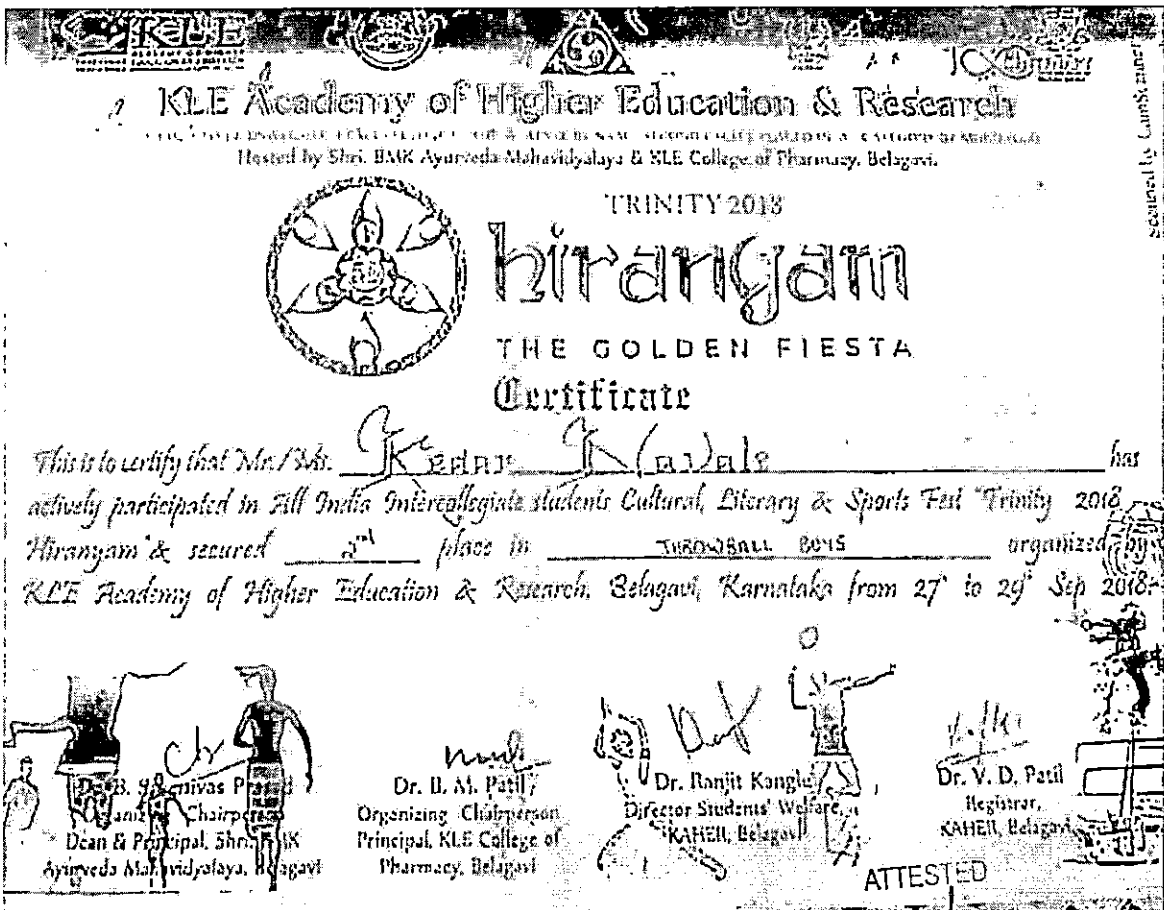 KLE
KLE Academy of Higher Education & Research
Hosted by Shri. BMK Ayurveda Mahavidyalaya & KLE College of Pharmacy, Belagavi.
Scanned by CamScanner
TRINITY 2018
hiranyam
THE GOLDEN FIESTA
Certificate
This is to certify that Mr./Ms. Kedar Navale has
actively participated in All India Intercollegiate students Cultural, Literary & Sports Fest "Trinity 2018
Hiranyam" & secured 2nd place in THROWBALL BOYS organized by
KLE Academy of Higher Education & Research, Belagavi, Karnataka from 27 to 29 Sep 2018.
Dr. B. Shrinivas Prasad
Organizing Chairperson
Dean & Principal, Shri. BMK
Ayurveda Mahavidyalaya, Belagavi
Dr. B. M. Patil
Organizing Chairperson
Principal, KLE College of
Pharmacy, Belagavi
Dr. Ranjit Kangle
Director Students' Welfare,
KAHER, Belagavi
Dr. V. D. Patil
Registrar,
KAHER, Belagavi
ATTESTED